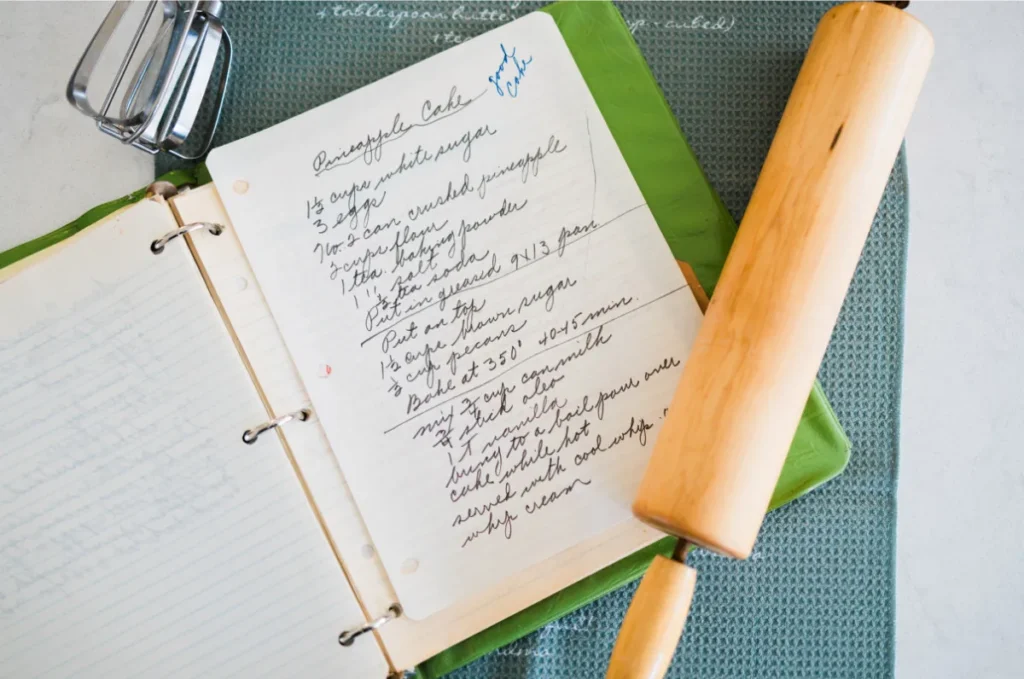 4 tablespoon butter
cubed)
1 tea
good
cake
Pineapple Cake
1½ cups white sugar
3 eggs
No. 2 can crushed pineapple
2 cups flour
1 tea. baking powder
1 " salt
½ tea soda
Put in greased 9x13 pan
Put on top
1½ cups brown sugar
cup pecans
Bake at 350° 40-45 min.
mix cup can milk
stick oleo
1 T vanilla
bring to a boil pour over
cake while hot
served with cool whip or
whip cream